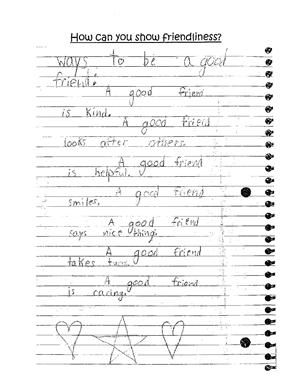 How can you show friendliness?
Ways to be a good
friend:
A good friend
is kind.
A good friend
looks after others.
A good friend
is helpful.
A good friend
smiles.
A good friend
says nice things.
A good friend
takes turns.
A good friend
is caring.